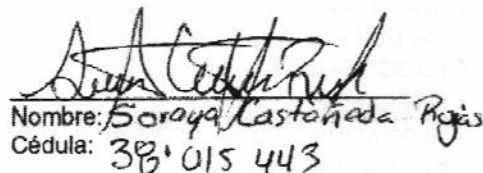 Nombre: Soraya Castañeda Rojas
Cédula: 38'015 443